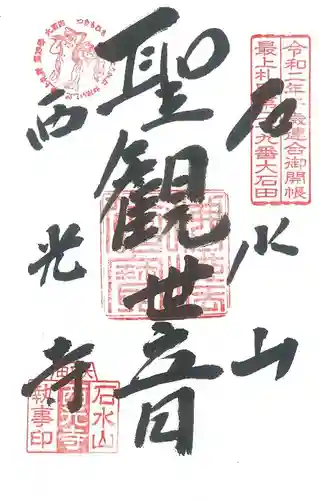 令和二年子歳連合御開帳
最上札所第二九番大石田
石水山
聖観世音
西光寺
石水山
西光寺
執事印